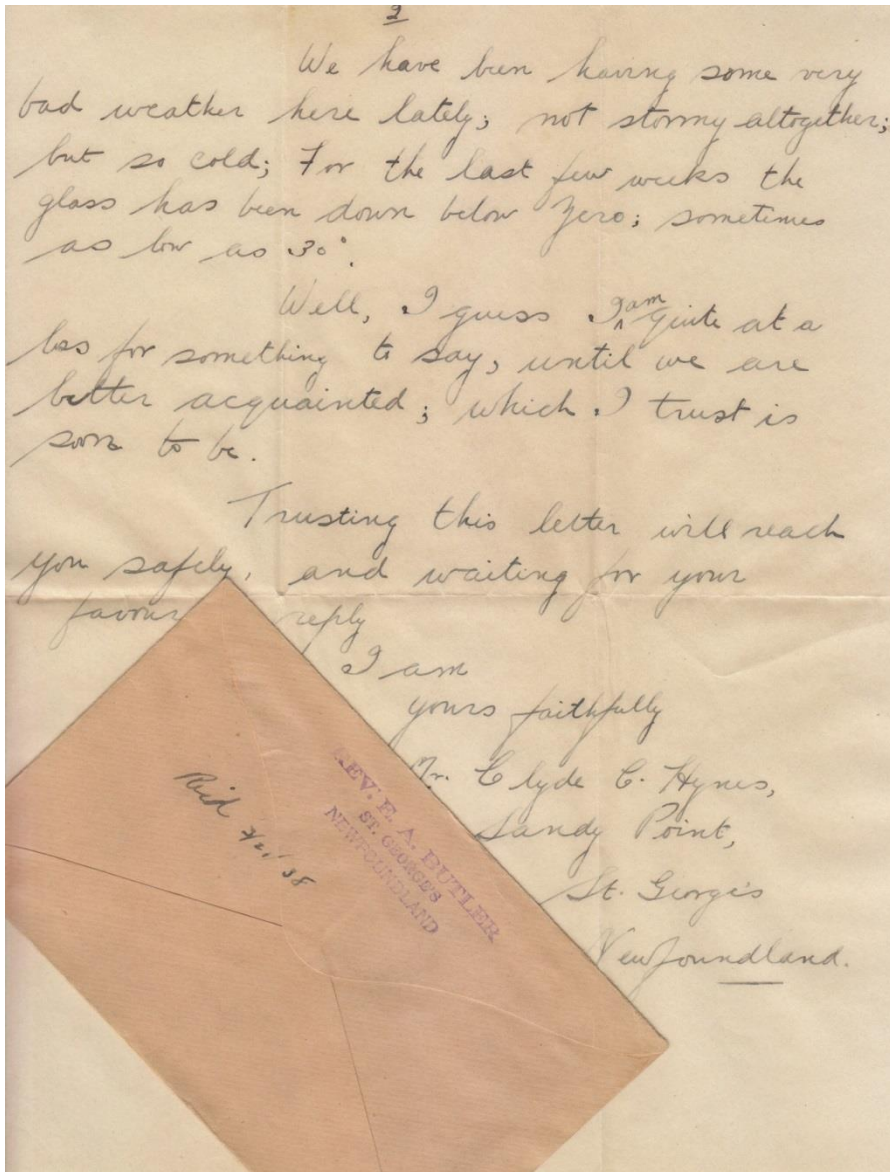 2
We have been having some very
bad weather here lately; not stormy altogether;
but so cold; For the last few weeks the
glass has been down below Zero; sometimes
as low as 30°.
Well, I guess I am quite at a
loss for something to say, until we are
better acquainted; which I trust is
soon to be.
Trusting this letter will reach
you safely, and waiting for your
favour reply
I am
yours faithfully
Mr. Clyde C. Hynes,
Sandy Point,
St. George's
Newfoundland.
REV. E. A. BUTLER
ST. GEORGE'S
NEWFOUNDLAND